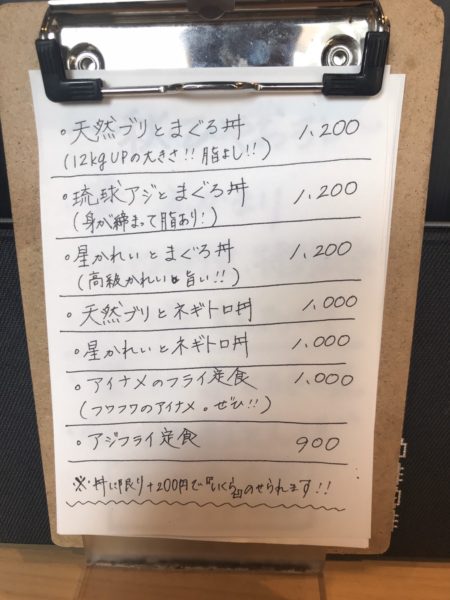 ・天然ブリとまぐろ丼 1,200
(12kgUPの大きさ!!脂よし!!)
・琉球アジとまぐろ丼 1,200
(身が締まって脂あり!)
・星かれいとまぐろ丼 1,200
(高級かれい 旨い!!)
・天然ブリとネギトロ丼 1,000
・星かれいとネギトロ丼 1,000
・アイナメのフライ定食 1,000
(フワフワのアイナメ。ぜひ!!)
・アジフライ定食 900
※丼に限り+200円で『いくら』のせられます!!